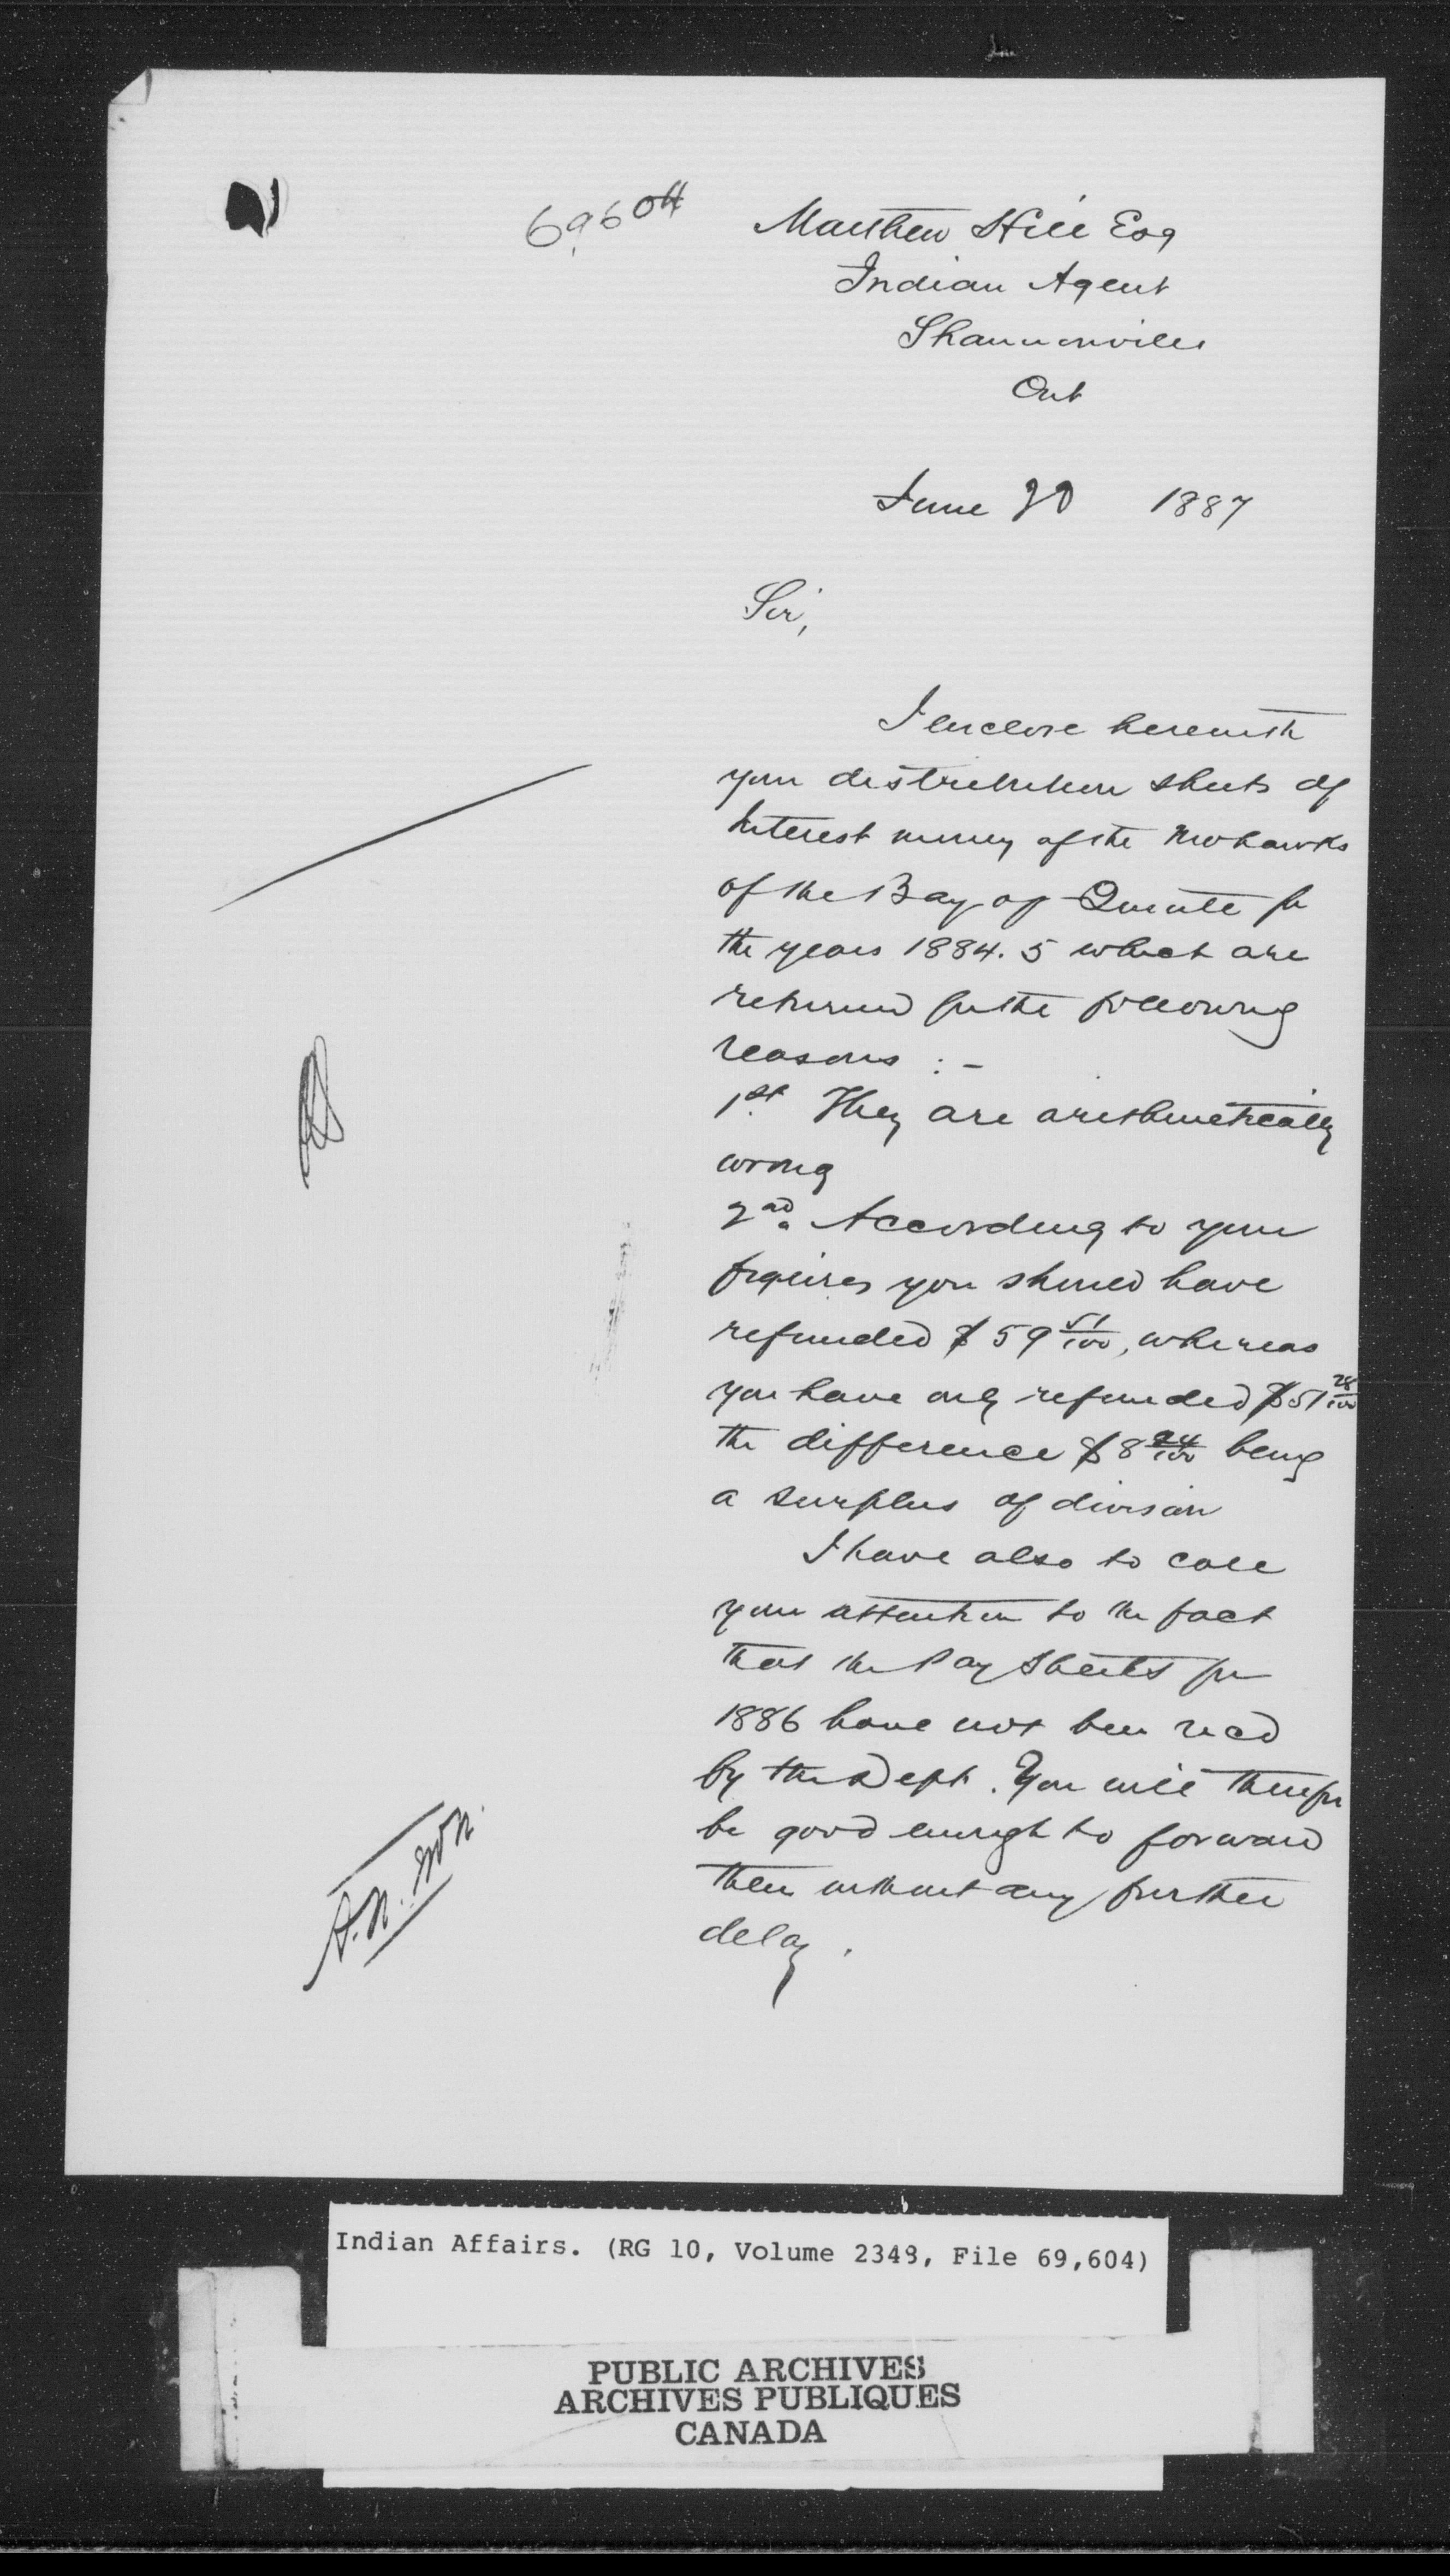 69604
Matthew Hill Esq
Indian Agent
Shannonville
Ont
June 20 1887
Sir,
I enclose herewith
your distribution sheets of
Interest money of the Mohawks
of the Bay of Quinte for
the years 1884.5 which are
returned for the following
reasons :-
1st They are arithmetically
wrong
2nd According to your
figures you should have
refunded $59 51/100, whereas
you have only refunded $51 28/100
the difference $8 24/100 being
a surplus of division
I have also to call
your attention to the fact
that the Pay Sheets for
1886 have not been recd
by the Dept. You will therefor
be good enough to forward
them without any further
delay.
Indian Affairs. (RG 10, Volume 2348, File 69,604)
PUBLIC ARCHIVES
ARCHIVES PUBLIQUES
CANADA